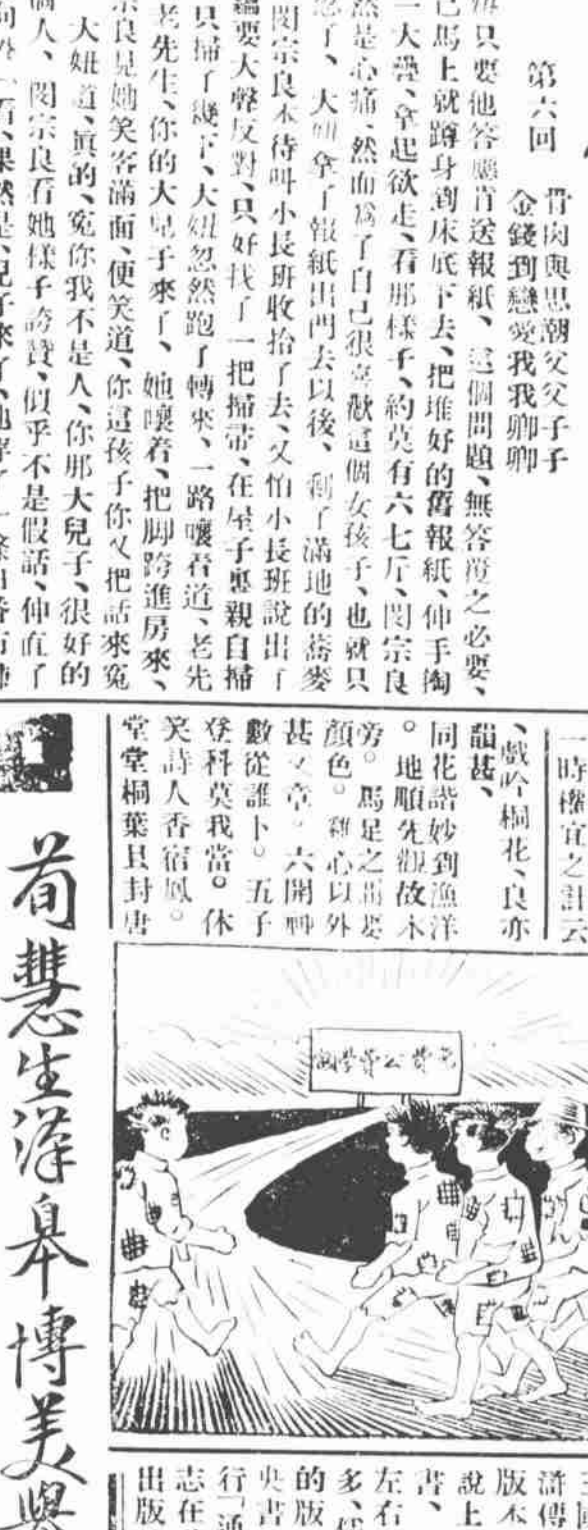 第六回
骨肉與思潮父父子子
金錢到戀愛我我卿卿
只要他答應肯送報紙、這個問題、無答覆之必要、
已馬上就蹲身到床底下去、把堆好的舊報紙、伸手掏
一大疊、拿起欲走、看那樣子、約莫有六七斤、閔宗良
然是心痛、然而爲了自己很喜歡這個女孩子、也就只
忍了、大妞拿了報紙出門去以後、剩了滿地的蕎麥
閔宗良本待叫小長班收拾了去、又怕小長班說出了
要大聲反對、只好找了一把掃帚、在屋子裏親自掃
只掃了幾下、大妞忽然跑了轉來、一路嚷着道、老先
老先生、你的大兒子來了、她嚷着、把脚跨進房來、
宗良見她笑容滿面、便笑道、你這孩子你又把話來冤
大妞道、眞的、冤你我不是人、你那大兒子、很好的
個人、閔宗良看她樣子誇贊、似乎不是假話、伸直了
向外一看、果然是、兒子來了、他
一時權宜之計云
、戲吟桐花、良亦
韻甚、
同花譜妙到漁洋
。地順先
旁。馬足之
顏色。
甚文章。六開
數從誰卜。五子
登科莫我當。休
笑詩人香宿鳳。
堂堂桐葉且封唐
免費公費學
荀慧生漢皋博美譽
滸傳
版本
說上
書、
左右
多、
的版
央書
行「通
志在
出版